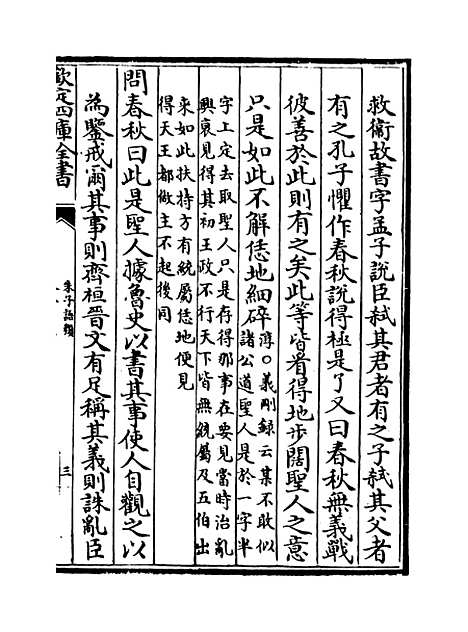 救衛故書字孟子說臣弑其君者有之子弑其父者
有之孔子懼作春秋說得極是了又曰春秋無義戰
彼善於此則有之矣此等皆看得地步闊聖人之意
只是如此不解恁地細碎淳○義剛録云某不敢似
諸公道聖人是於一字半
字上定去取聖人只是存得那事在要見當時治亂
興衰見得其初王政不行天下皆無統屬及五伯出
来如此扶持方有統屬恁地便見
得天王都做主不起後同
問春秋曰此是聖人據魯史以書其事使人自觀之以
為鑒戒爾其事則齊桓晉文有足稱其義則誅亂臣
欽定四庫全書
朱子語類
三